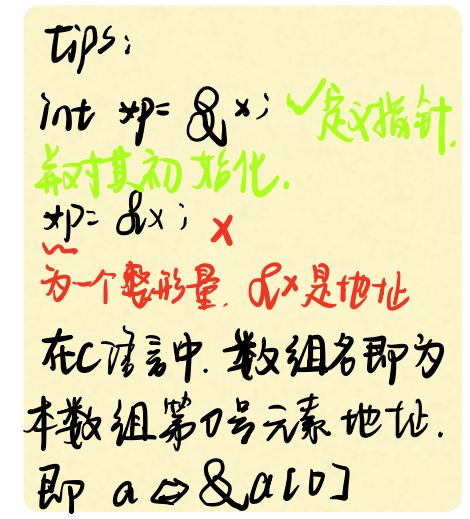 tips:
int *p= &x; ✓定义指针,
并对其初始化.
*p= &x; x
为一个整形量. &x是地址
在C语言中. 数组名即为
本数组第0号元素地址.
即 a⇔&a[0]